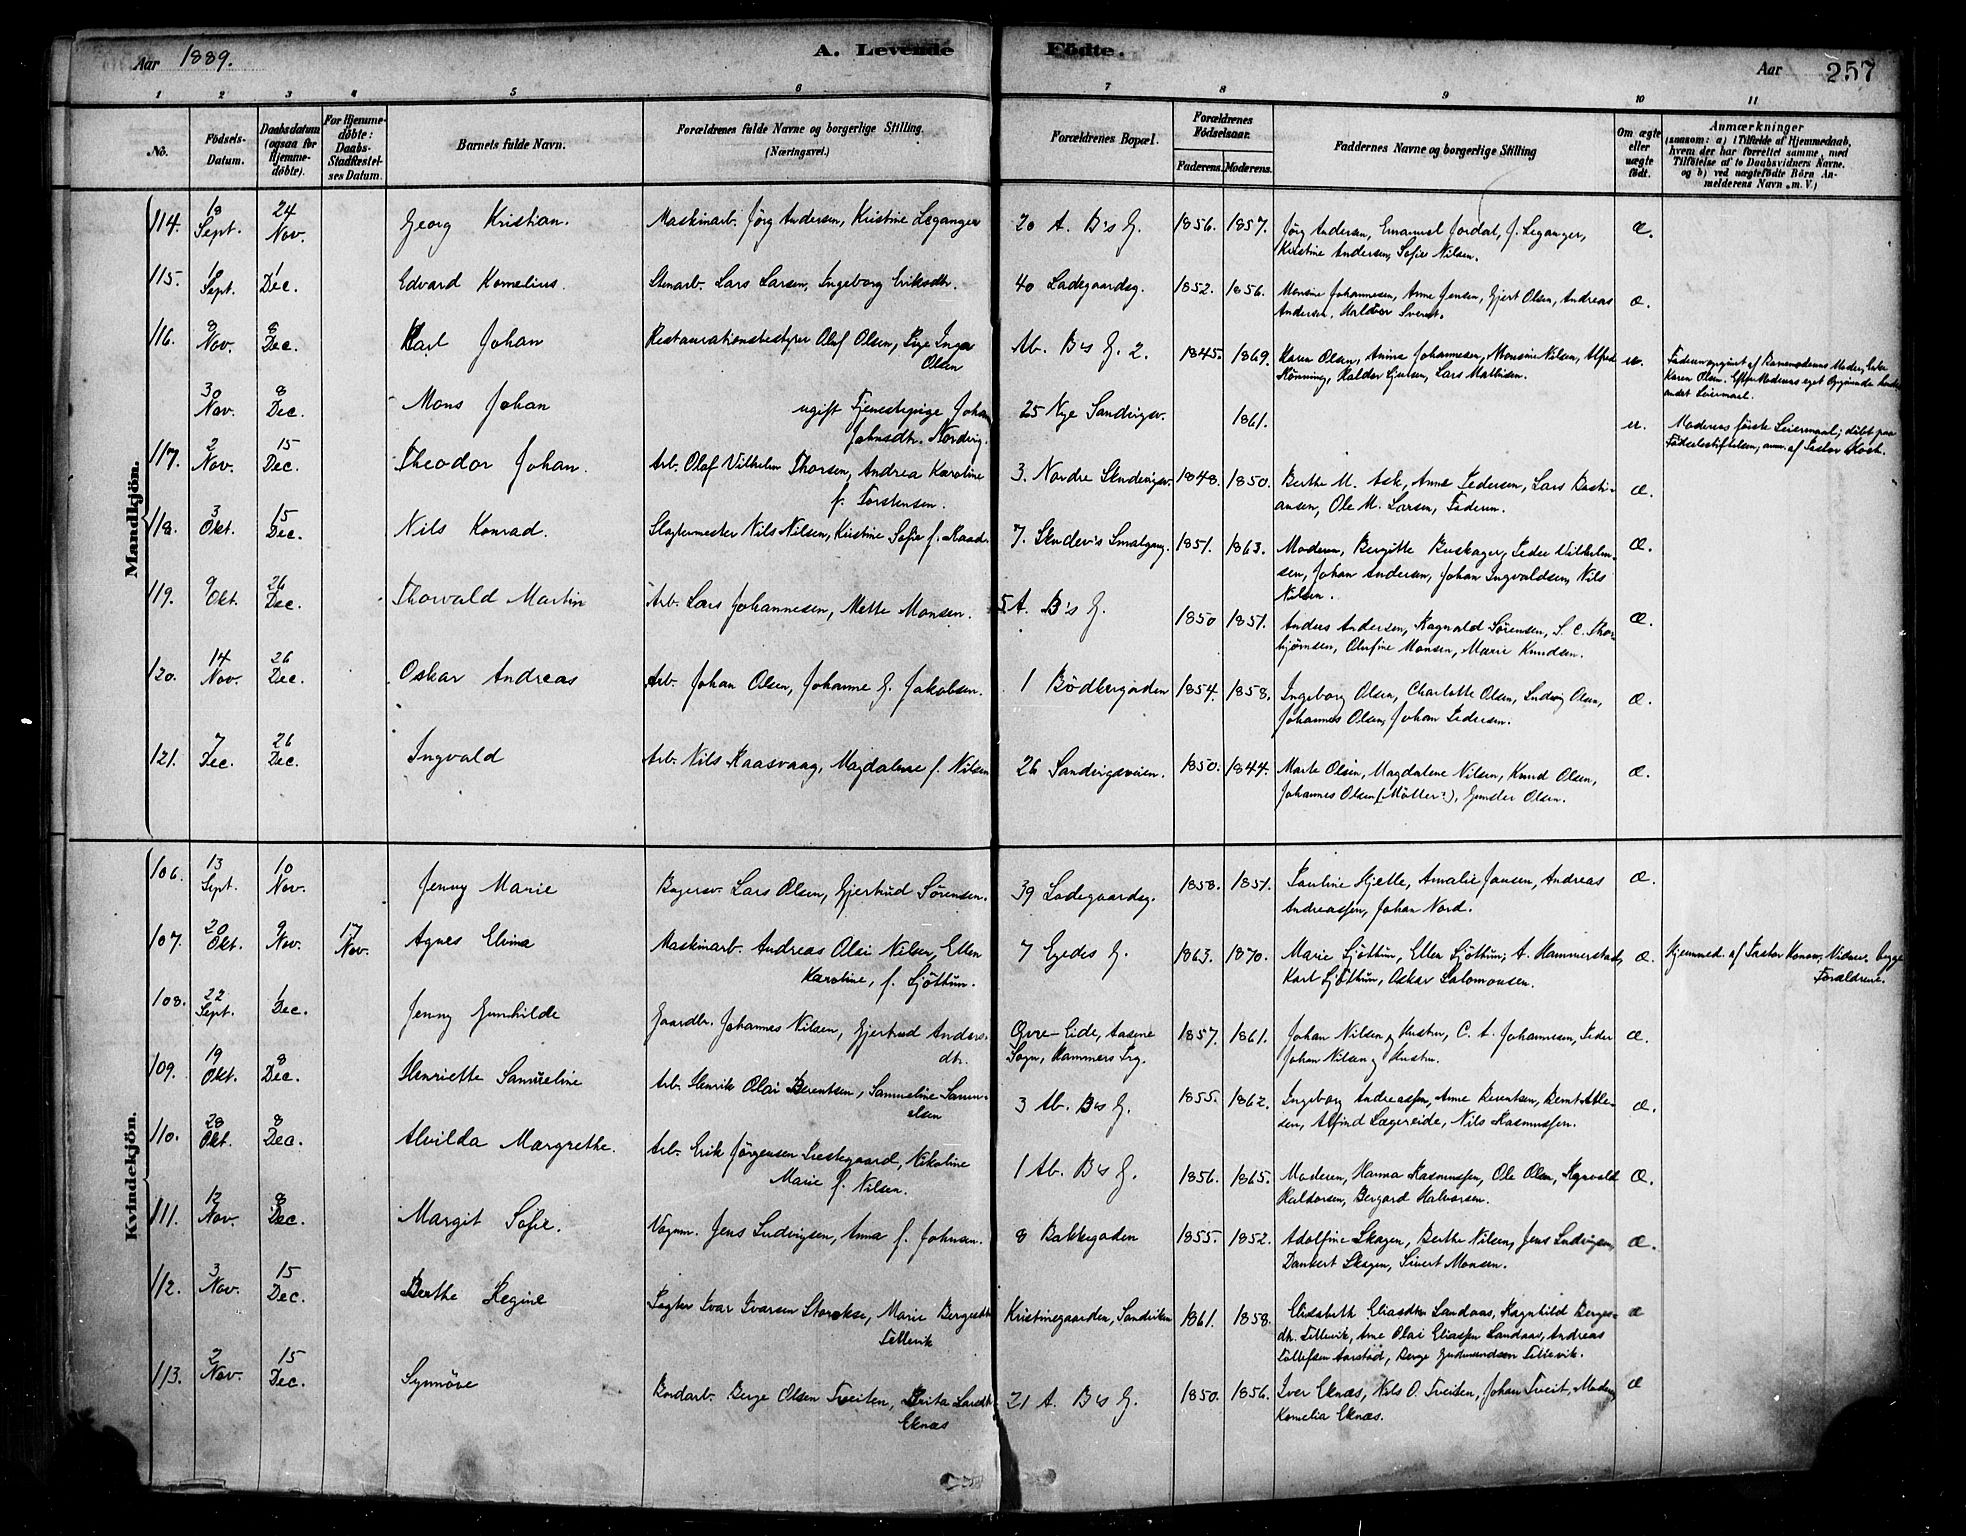 Aar 1889. A. Levende Födte. Aar 257
1 2 3 4 5 6 7 8 9 10 11
No. Födsels-Datum. Daabsdatum (ogsaa for Hjemme-döbte). For Hjemme-döbte: Daabs-Stadfæstel-ses Datum. Barnets fulde Navn. Forældrenes fulde Navne og borgerlige Stilling. (Næringsvei.) Forældrenes Bopæl. Forældrenes Födselsaar. Faderens. Moderens. Faddernes Navne og borgerlige Stilling Om ægte eller uægte födt. Anmærkninger (saasom: a) i Tilfælde af Hjemmedaab, hvem der har forrettet samme, med Tilföielse af to Daabsvidners Navne. og b) ved uægtefödte Börn An-melderens Navn o. m. V.)
Mandkjön.
114. 18 Sept. 24 Nov. Georg Kristian. Maskinarb. Jörg Andersen, Kristine Leganger 20 A. B's G. 1856. 1857. Jörg Andersen, Emanuel Jordal, J. Leganger,
Kristine Andersen, Sofie Nilsen. Æ.
115. 1 Sept. 1 Dec. Edvard Kornelius. Stenarb. Lars Larsen, Ingeborg Eriksdtr. 40 Ladegaardsg. 1852. 1856. Monsine Johannesen, Anne Jensen, Gjert Olsen, Andreas
Andersen, Haldor Sverst. Æ.
116. 8 Nov. 8 Dec. Karl Johan Restaurationsbestyrer Oluf Olsen, Pige Inger
Olsen Ab. B's G. 2. 1845. 1869. Karen Olsen, Anna Johannesen, Monsine Nilsen, Alfred
Rönning, Haldor Gjertsen, Lars Mathisen. u. Faderen opgivet af Barnemoderens Moder, Enke
Karen Olsen. Efter Moderens eget Opgivende hendes
andet Leiermaal.
30 Nov. 8 Dec. Mons Johan ugift Tjenestepige Johan
Johnsdtr. Nordvig. 25 Nye Sandvigsv. 1861. u. Moderens förste Leiermaal; döbt paa
Födselsstiftelsen, anm. af Pastor Koch.
117. 2 Nov. 15 Dec. Theodor Johan. Arb. Olaf Vilhelm Thorsen, Andrea Karoline
f. Torstensen. 3. Nordre Skudevigsv. 1848. 1850. Berthe M. Ask, Anne Pedersen, Lars Basti-
ansen, Ole M. Larsen, Faderen. Æ.
118. 3 Okt. 15 Dec. Nils Konrad. Slagtermester Nils Nilsen, Kristine Sofie f. Raad. 7. Skudev's Smalgang. 1851. 1863. Moderen, Bergitte Buskager, Peder Wilhelm-
sen, Johan Andersen, Johan Ingvaldsen, Nils
Nilsen. Æ.
119. 9 Okt. 26 Dec. Thorvald Martin Arb. Lars Johannesen, Mette Monsen. 5 A. B's G. 1850 1851. Anders Andersen, Ragnvald Sörensen, S. C. Thor-
björnsen, Olufine Monsen, Marie Knudsen. Æ.
120. 14 Nov. 26 Dec. Oskar Andreas Arb. Johan Olsen, Johanne G. Jakobsen. 1 Bödkergaden 1854. 1858. Ingeborg Olsen, Charlotte Olsen, Ludvig Olsen,
Johannes Olsen, Johan Pedersen. Æ.
121. 7 Dec. 26 Dec. Ingvald Arb. Nils Raasvaag, Magdalene f. Nilsen 26 Sandvigsveien. 1850. 1844. Marte Olsen, Magdalene Nilsen, Knud Olsen,
Johannes Olsen (Möller?), Gunder Olsen. Æ.
Kvindekjön.
106. 13 Sept. 10 Nov. Jenny Marie Bagersv. Lars Olsen, Gjertrud Sörensen. 39 Ladegaardsg. 1858. 1851. Pauline Hjelle, Amalie Jansen, Andreas
Andreassen, Johan Nord. Æ.
107. 20 Okt. 9 Nov. 17 Nov. Agnes Elina Maskinarb. Andreas Olai Nilsen, Ellen
Karoline, f. Sjöthun. 7 Egedes G. 1863. 1870. Marie Sjöthun, Ellen Sjöthun, A. Hammerstad,
Karl Sjöthun, Oskar Salomonsen. Æ. Hjemmed. af Pastor Konow, Vidner begge
Forældrene.
108. 22 Sept. 1 Dec. Jenny Gunhilde Gaardbr. Johannes Nilsen, Gjertrud Anders-
dtr. Övre-Eide, Aasene
Sogn, Hammers Prg. 1857. 1861. Johan Nilsen og Hustru, C. A. Johannesen, Peder
Johan Nilsen og Hustru. Æ.
109. 19 Okt. 8 Dec. Henriette Samueline Arb. Henrik Olai Berentsen, Samueline Samu-
elsen 3 Ab. B's G. 1855. 1862. Ingeborg Andreassen, Anne Berentsen, Bernt Atle-
sen, Alfind Lægereide, Nils Rasmussen. Æ.
110. 28 Okt. 8 Dec. Alvilda Margrethe. Arb. Erik Jörgensen Prestegaard, Nikoline
Marie f. Nilsen. 1 Ab. B's G. 1856. 1865. Moderen, Hanna Rasmussen, Ole Olsen, Ragnvald
Haldorsen, Bergard Halvorsen. Æ.
111. 12 Nov. 8 Dec. Margit Sofie. Vognm. Jens Ludvigsen, Anna f. Johnsen. 8 Bakkegaden 1855. 1852. Adolfine Skagen, Berthe Nilsen, Jens Ludvigsen,
Dankert Skagen, Sivert Monsen. Æ.
112. 3 Nov. 15 Dec. Berthe Regine Pagter Ivar Ivarsen Storekse, Marie Bergesdtr
Tellevik Kristinegaarden, Sandviken 1861. 1858. Elisabeth Eliasdtr Landaas, Ragnhild Berges-
dtr. Tellevik, Arne Olai Eliassen Landaas, Andreas
Tollefsen Aarstad, Berge Gudmundsen Tellevik. Æ
113. 2 Nov. 15 Dec. Synnöve Bordarb. Berge Olsen Tveiten, Brita Larsdtr
Eknæs 21 A. B's G. 1850. 1856. Iver Eknæs, Nils O. Tveiten, Johan Tveit, Moderen,
Kornelia Eknæs. Æ